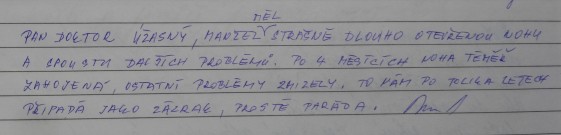 MĚL
PAN DOKTOR ÚŽASNÝ, MANŽEL STRAŠNĚ DLOUHO OTEVŘENOU NOHU
A SPOUSTU DALŠÍCH PROBLÉMŮ. PO 4 MĚSÍCÍCH NOHA TÉMĚŘ
ZAHOJENÁ, OSTATNÍ PROBLÉMY ZMIZELY. TO NÁM PO TOLIKA LETECH
PŘIPADÁ JAKO ZÁZRAK, PROSTĚ PARÁDA.